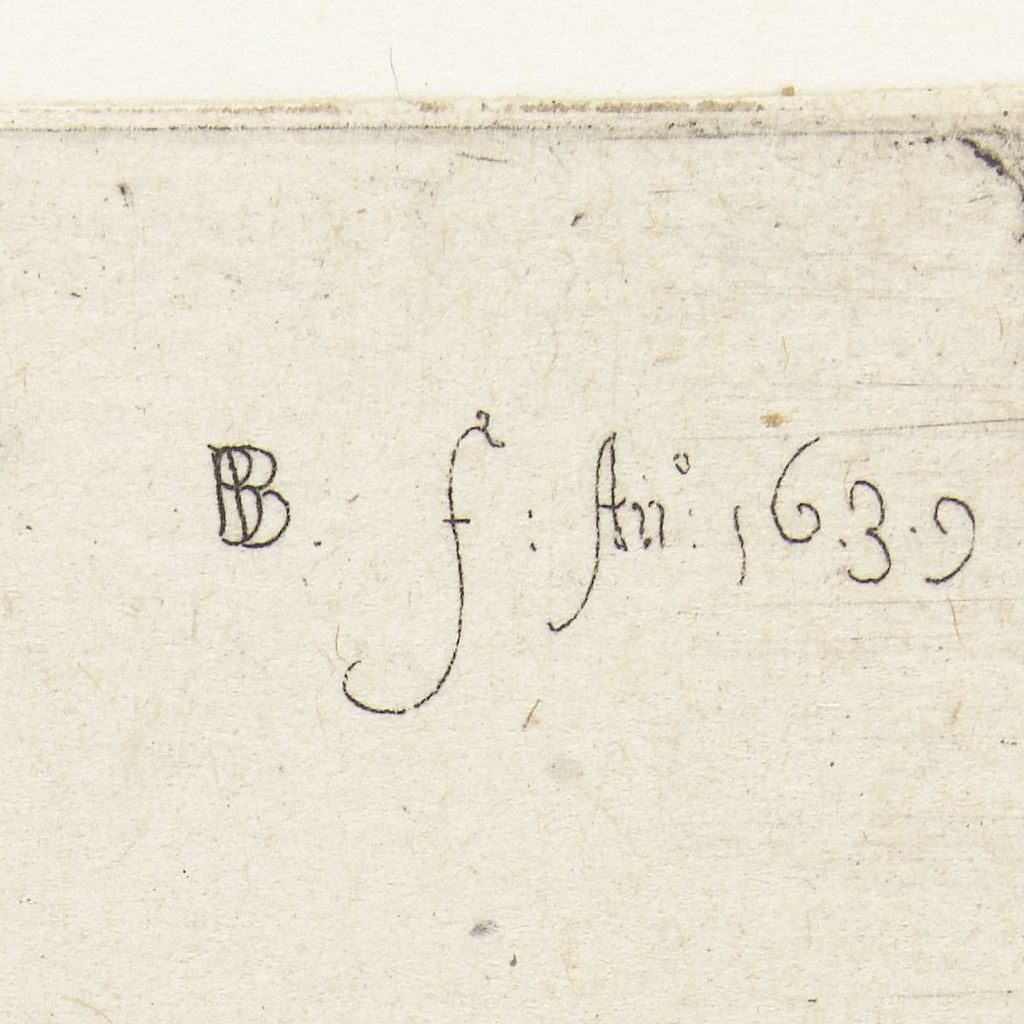 BB. f : An° : 16.3.9